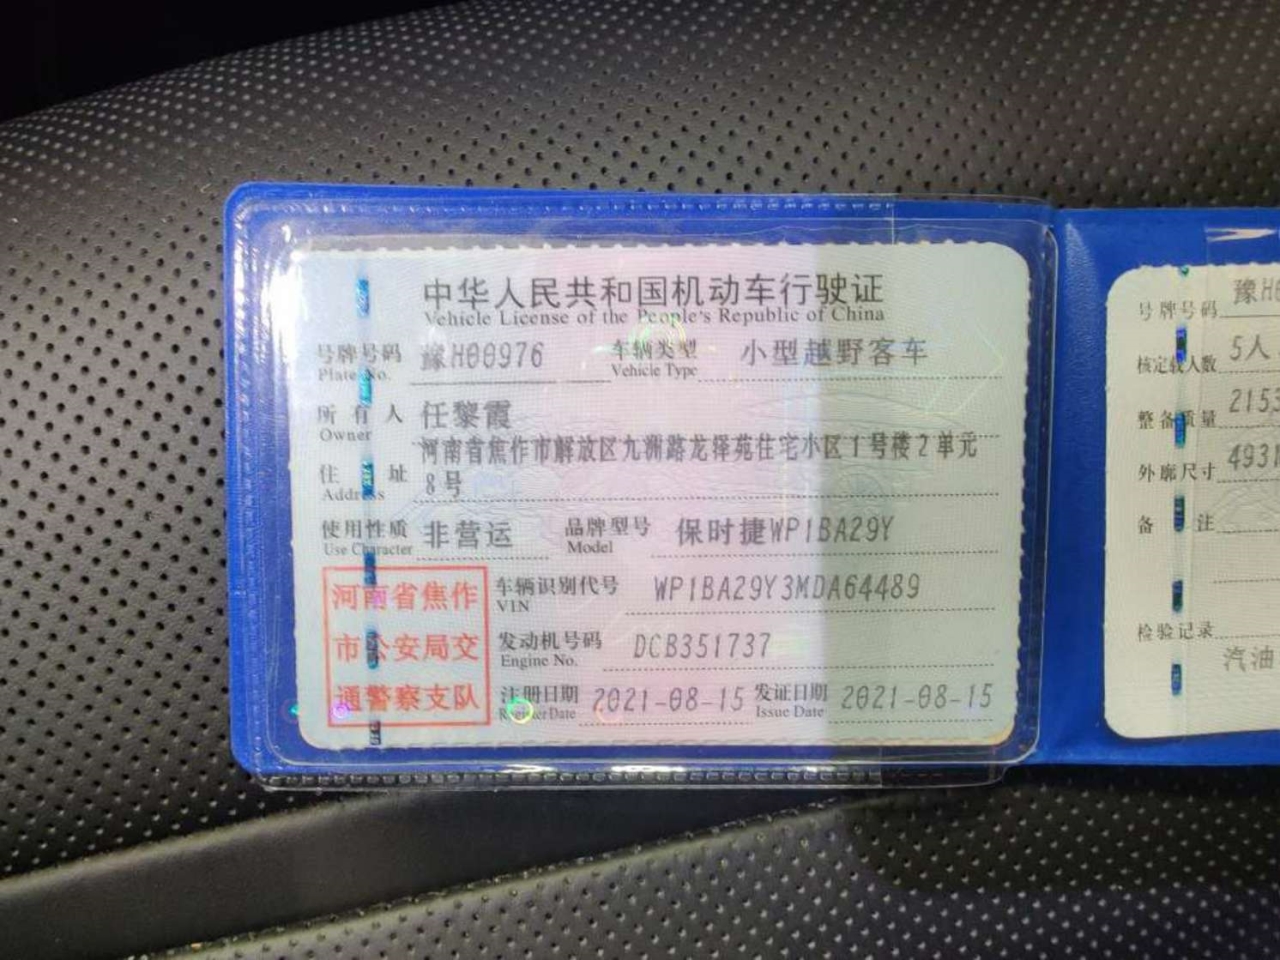 中华人民共和国机动车行驶证
Vehicle License of the People's Republic of China
号牌号码 豫H00976 车辆类型 小型越野客车
Plate No. Vehicle Type
所有人 任黎霞
Owner
住址 河南省焦作市解放区九洲路龙铎苑住宅小区1号楼2单元
Address 8号
使用性质 非营运 品牌型号 保时捷WP1BA29Y
Use Character Model
河南省焦作
市公安局交
通警察支队
车辆识别代号 WP1BA29Y3MDA64489
VIN
发动机号码 DCB351737
Engine No.
注册日期 2021-08-15 发证日期 2021-08-15
Register Date Issue Date
号牌号码 豫H
核定载人数 5人
整备质量 215
外廓尺寸 493
备注
检验记录
汽油